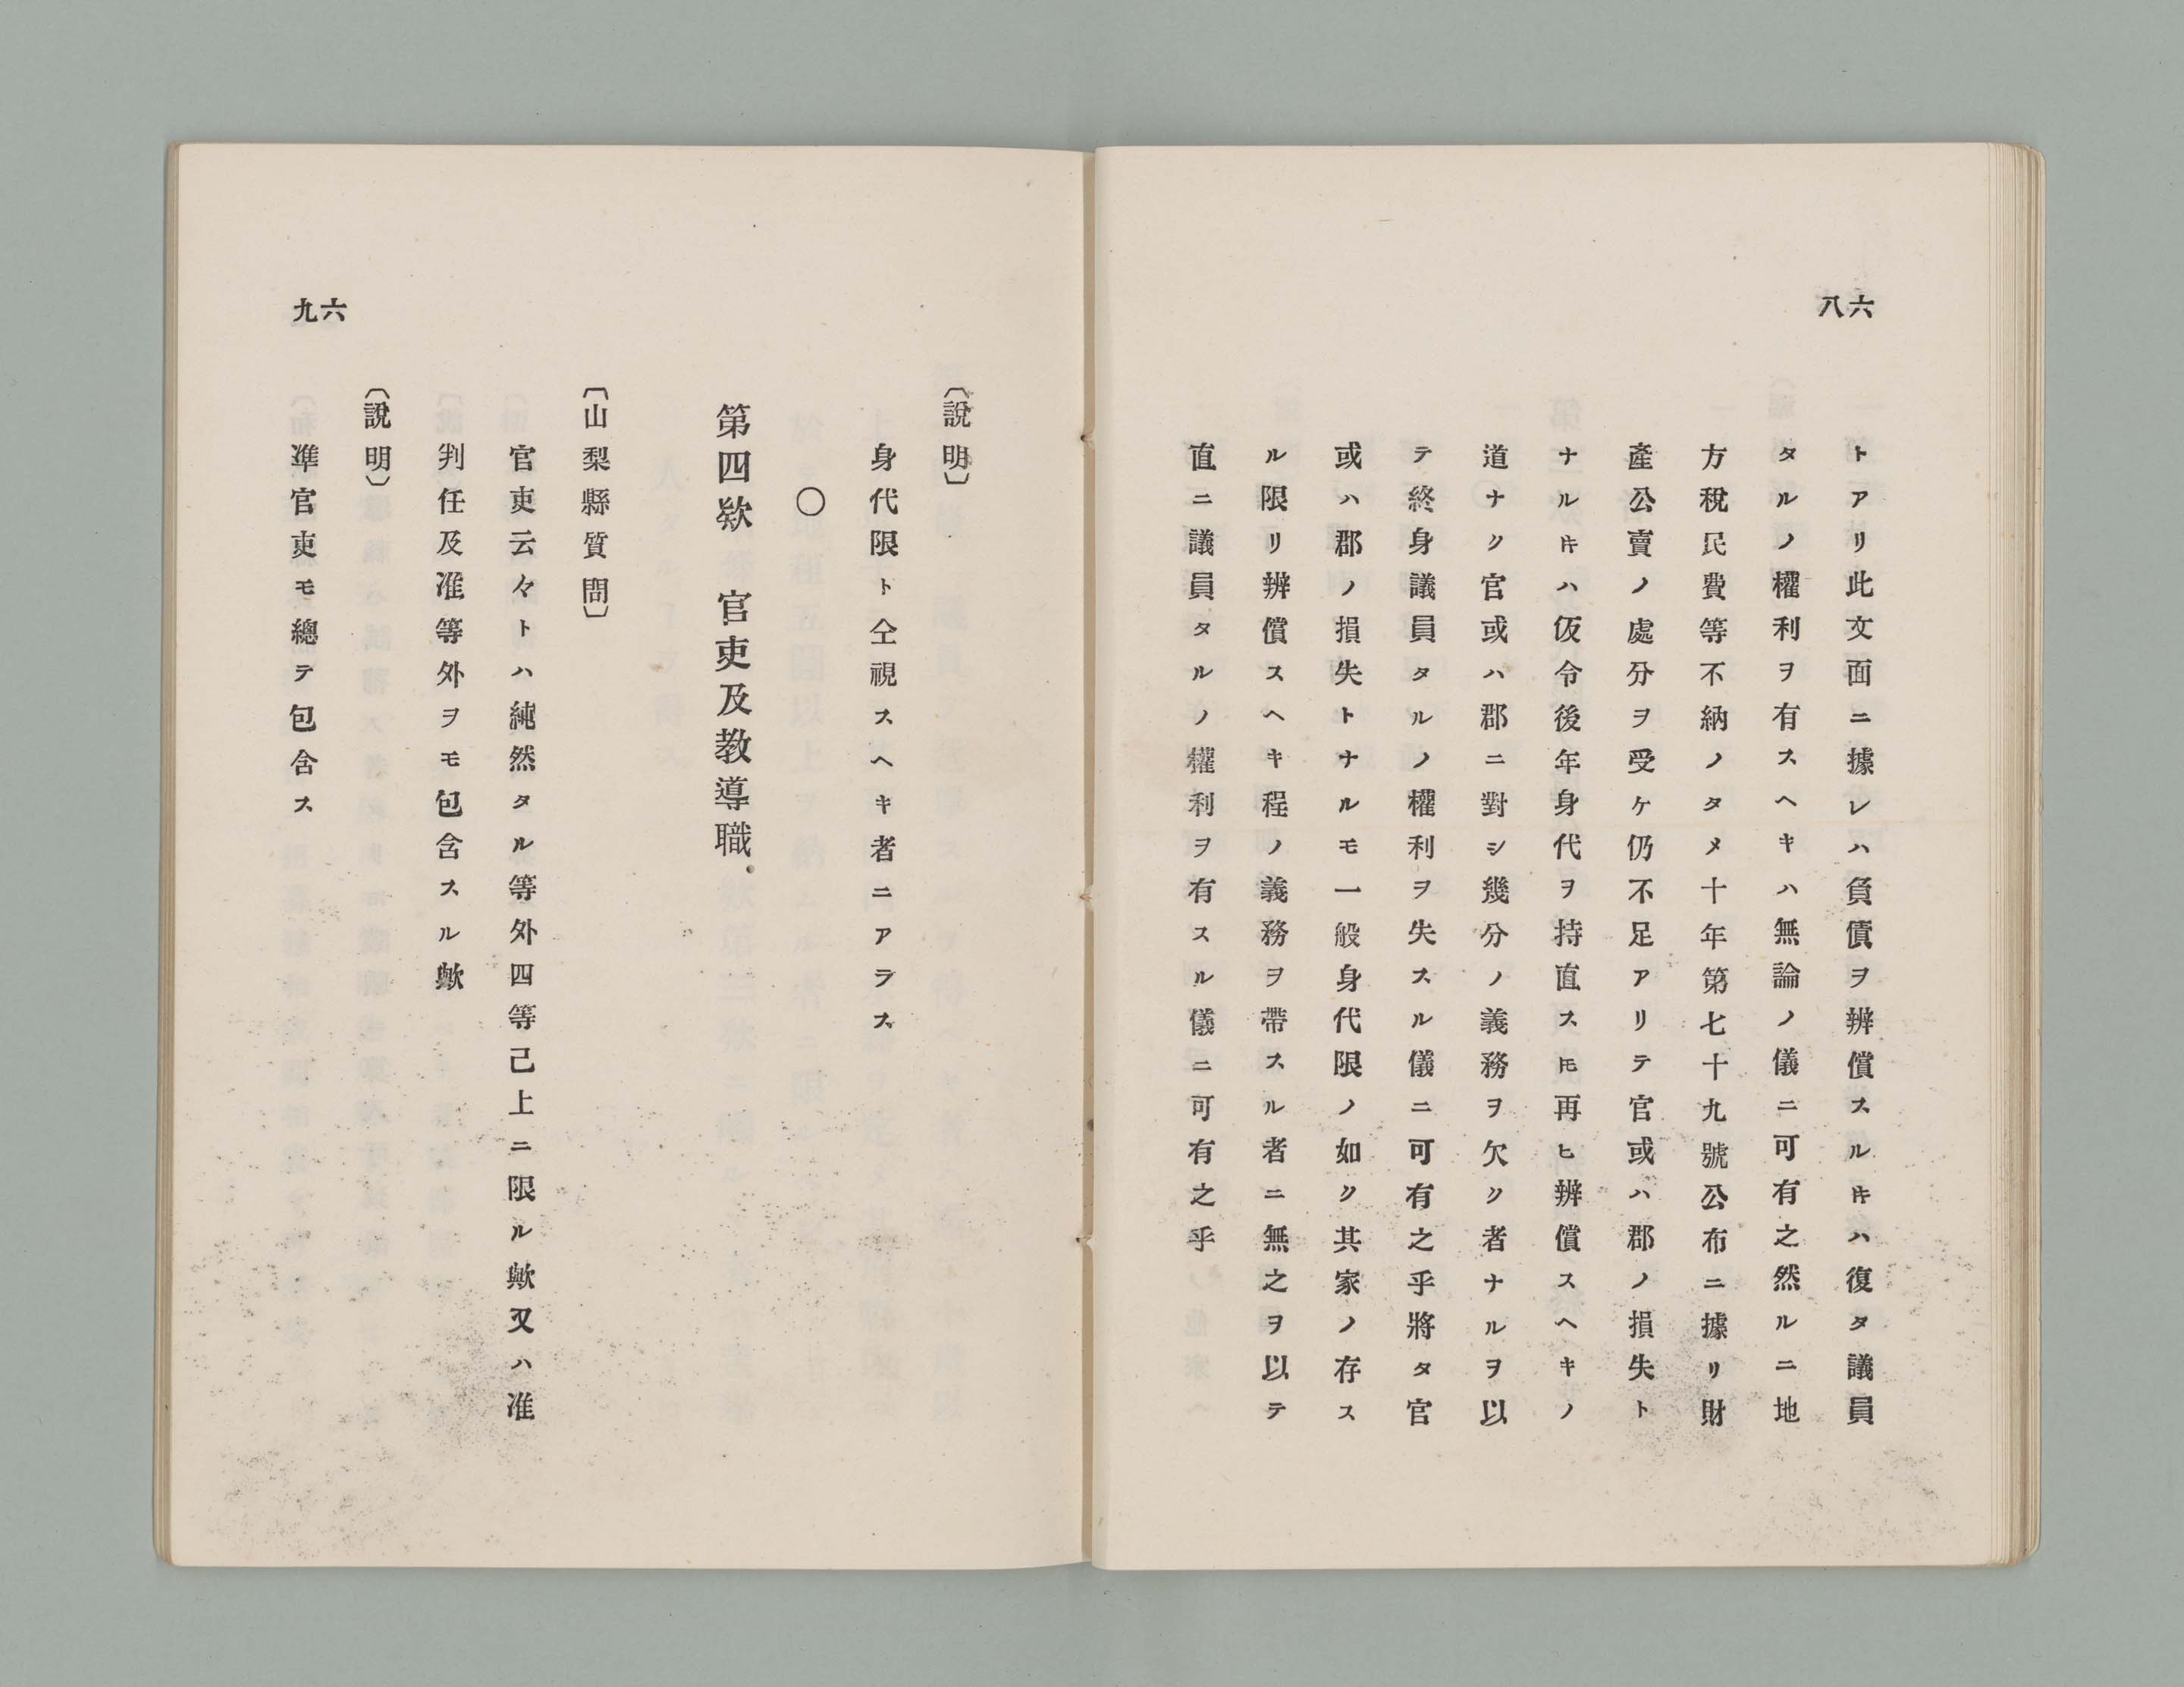 六八
トアリ此文面ニ據レハ負債ヲ辨償スルヰハ復タ議員
タルノ權利ヲ有スヘキハ無論ノ儀ニ可有之然ルニ地
方稅民費等不納ノタメ十年第七十九號公布ニ據リ財
產公賣ノ處分ヲ受ケ仍不足アリテ官或ハ郡ノ損失ト
ナルヰハ仮令後年身代ヲ持直ストモ再ヒ辨償スヘキノ
道ナク官或ハ郡ニ對シ幾分ノ義務ヲ欠ク者ナルヲ以
テ終身議員タルノ權利ヲ失スル儀ニ可有之乎將タ官
或ハ郡ノ損失トナルモ一般身代限ノ如ク其家ノ存ス
ル限リ辨償スヘキ程ノ義務ヲ帶スル者ニ無之ヲ以テ
直ニ議員タルノ權利ヲ有スル儀ニ可有之乎
〔說明〕
身代限ト仝視スヘキ者ニアラス
〇
第四欵 官吏及教導職
〔山梨縣質問〕
官吏云々トハ純然タル等外四等己上ニ限ル歟又ハ准
判任及准等外ヲモ包含スル歟
〔說明〕
凖官吏モ總テ包含ス
六九